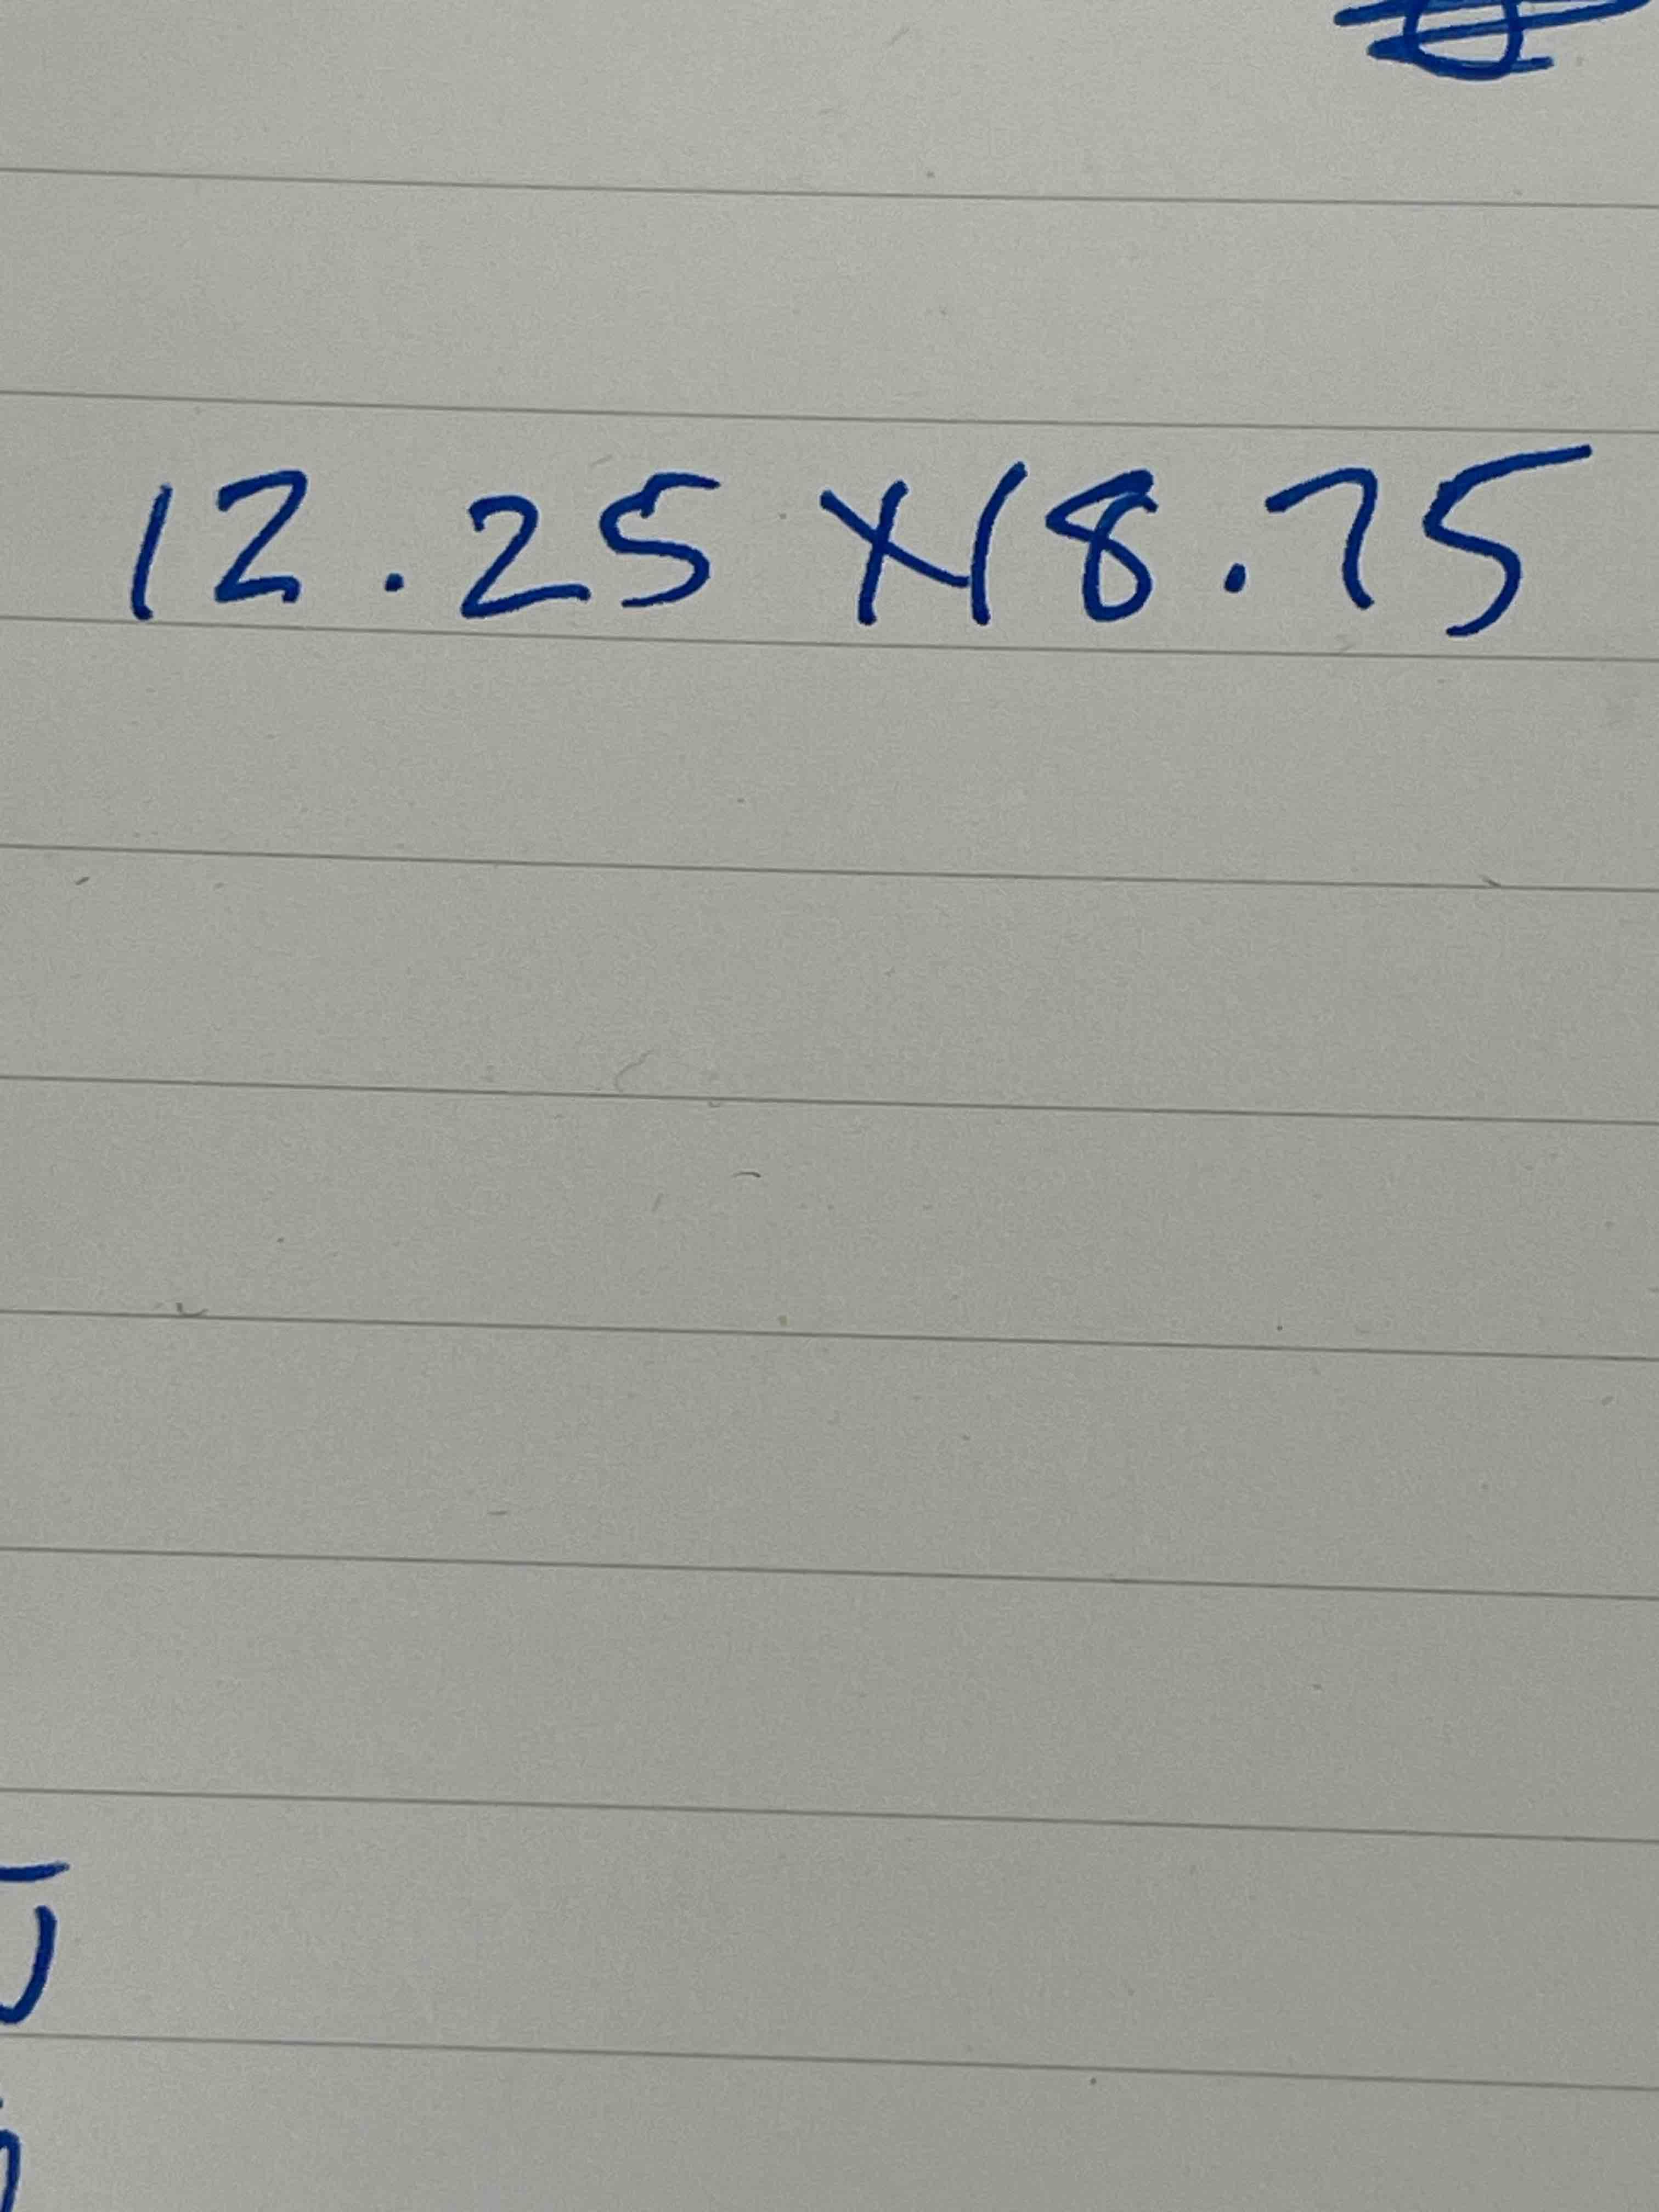 12.25 x 18.75